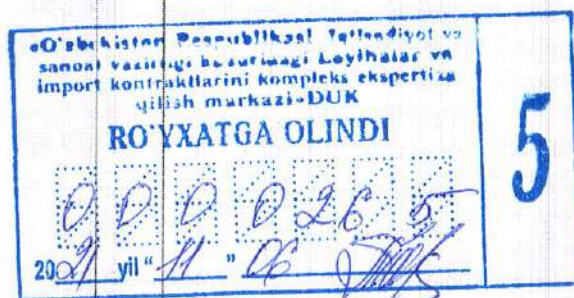 «O'zbekiston Respublikasi Iqtisodiyot va
sanoat vazirligi huzuridagi Loyihalar va
import kontraktlarini kompleks ekspertiza
qilish markazi»DUK
RO'YXATGA OLINDI
0 0 0 0 2 6 5
2021 yil "11" 06
5